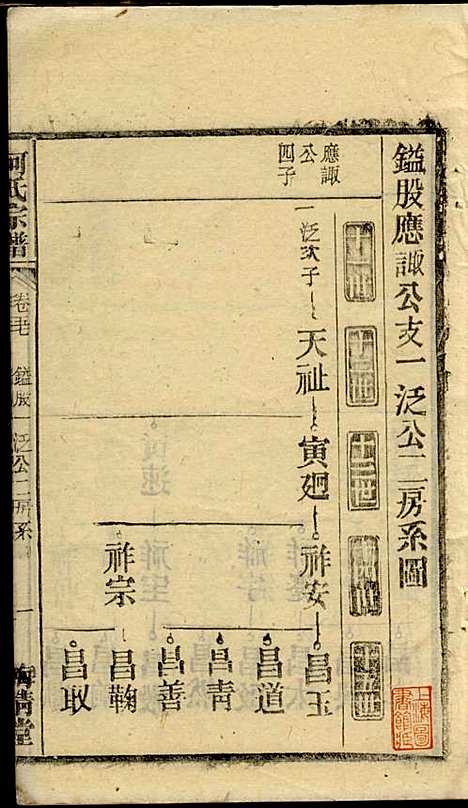 鎰股應諏公支一泛公二房系圖
十一世 十二世 十三世 十四世 十五世
應諏
公
四子
一泛次子 天祉 寅廻 祥安 昌玉
昌道
昌青
昌善
祥宗 昌鞠
昌取
何氏宗譜 卷 鎰股一泛公二房系 一
上海圖
書館藏